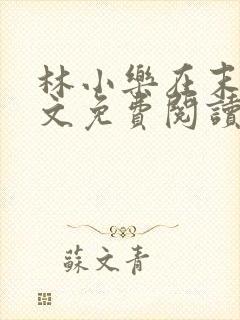 林小樂在末
文免費閱讀
蘇文青